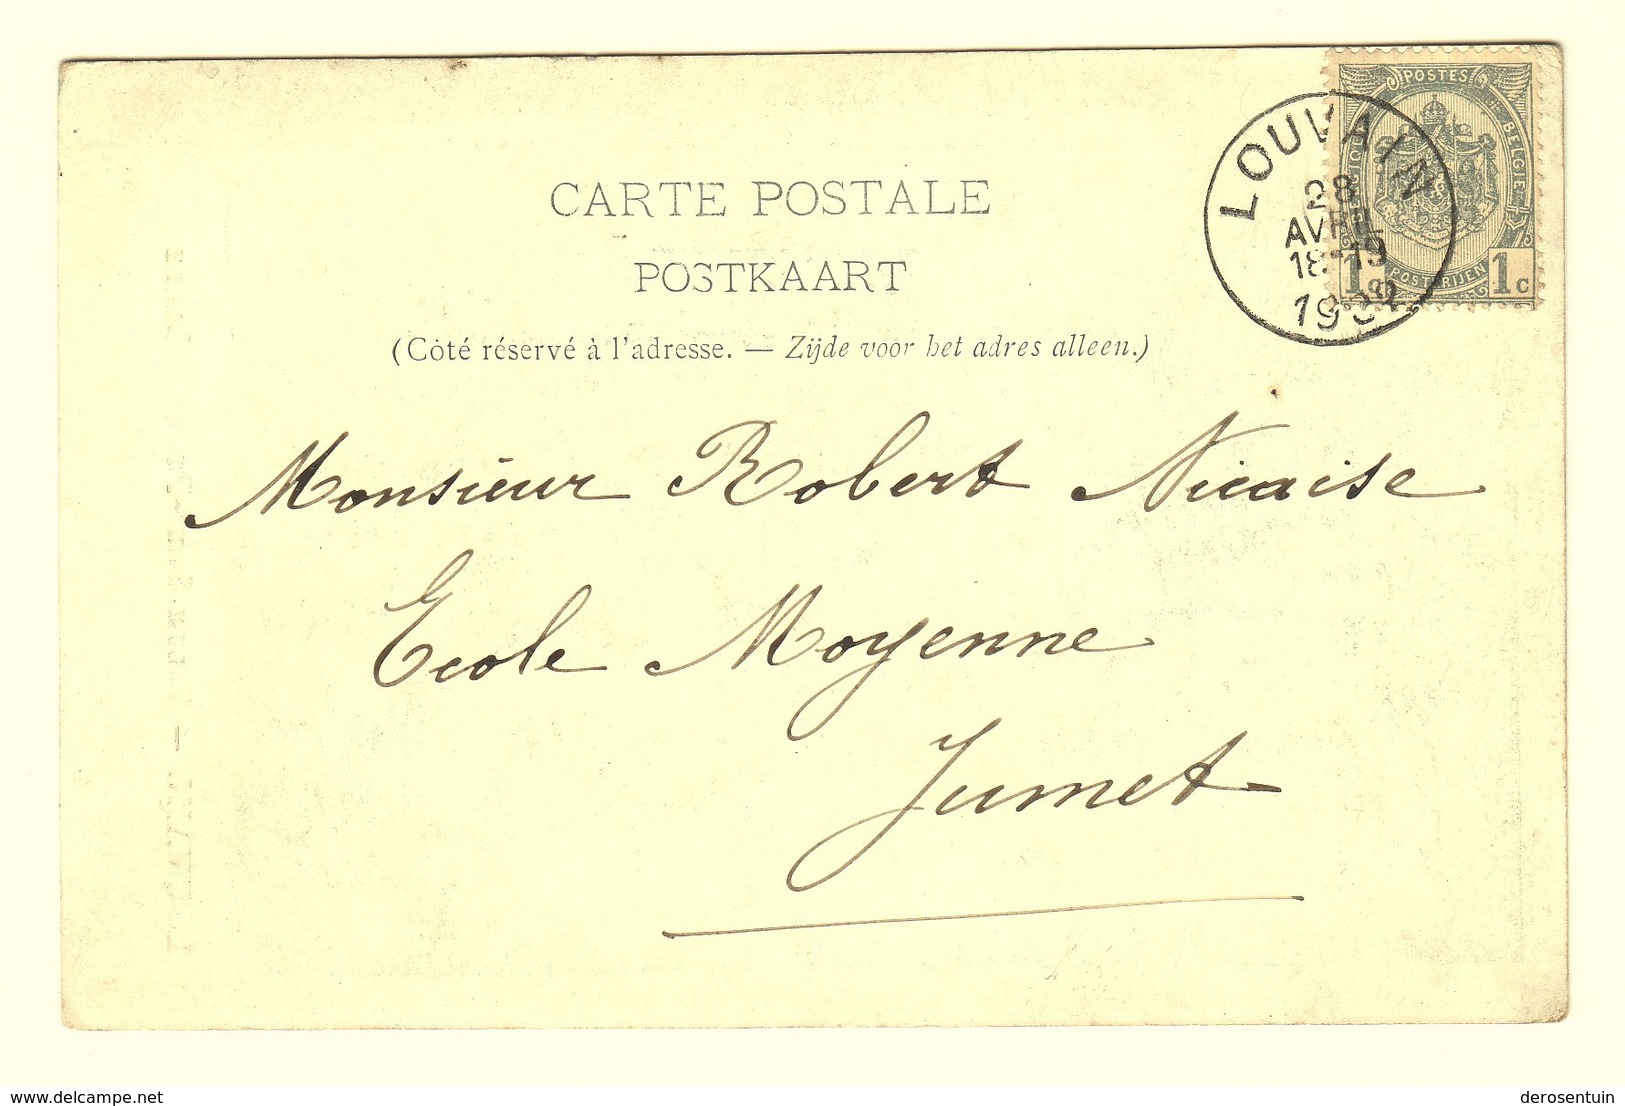 CARTE POSTALE
POSTKAART
(Côté réservé à l'adresse. — Zijde voor het adres alleen.)
LOUVAIN
28
AVRIL
18-19
POSTES
BELGIE
POSTERIJEN
1 1c
Monsieur Robert Nicaise
Ecole Moyenne
Jumet
delcampe.net
derosentuin